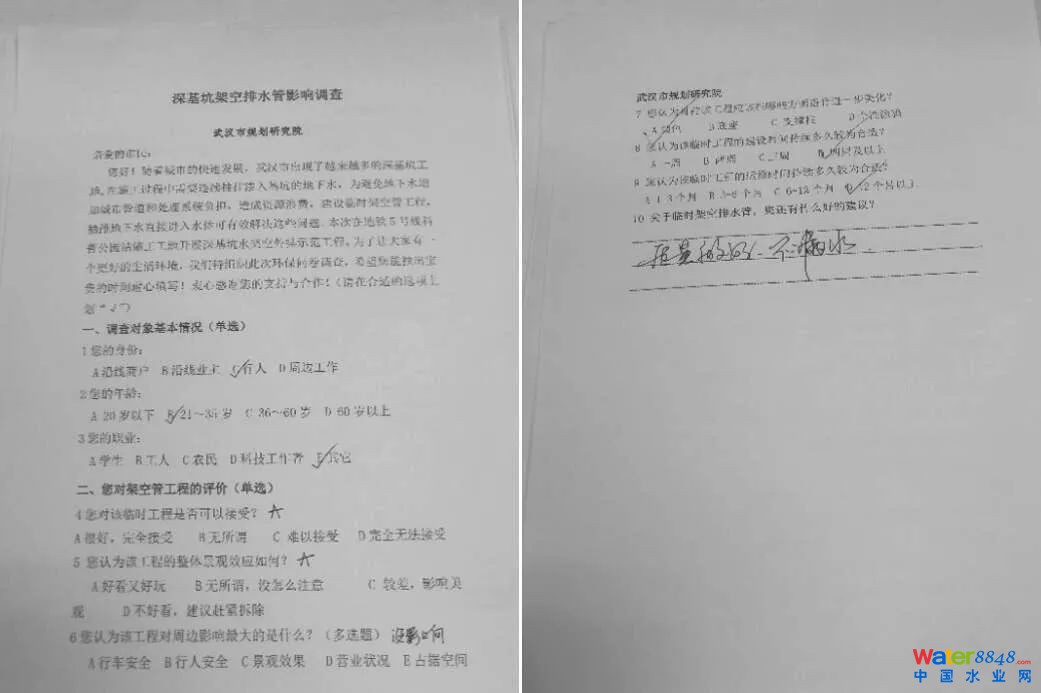 深基坑架空排水管影响调查
武汉市规划研究院
亲爱的市民:
您好!随着城市的快速发展,武汉市出现了越来越多的深基坑工
地,在施工过程中需要连续抽排渗入基坑的地下水,为避免地下水增
加城市管道和处理系统负担、造成资源浪费,建设临时架空管工程,
抽排地下水直接进入水体可有效解决这些问题。本次在地铁5号线科
普公园站施工工地开展深基坑水架空外排示范工程,为了让大家有一
个更好的生活环境,我们特组织此次环保问卷调查,希望您能抽出宝
贵的时间耐心填写!衷心感谢您的支持与合作!(请在合适的选项上
划“√”)
一、调查对象基本情况(单选)
1您的身份:
A沿线商户 B沿线业主 C行人 D周边工作
2您的年龄:
A 20岁以下 B 21~35岁 C 36~60岁 D 60岁以上
3您的职业:
A学生 B工人 C农民 D科技工作者 E其它
二、您对架空管工程的评价(单选)
4您对该临时工程是否可以接受? A
A很好,完全接受 B无所谓 C 难以接受 D完全无法接受
5 您认为该工程的整体景观效应如何? A
A好看又好玩 B无所谓,没怎么注意 C 较差,影响美
观 D不好看,建议赶紧拆除
6您认为该工程对周边影响最大的是什么?(多选题) 没影响
A行车安全 B行人安全 C景观效果 D营业状况 E占据空间
武汉市规划研究院
7 您认为排台该工程应该对哪些方面进行进一步美化?
A颜色 B底座 C支撑柱
8 您认为该临时工程的建设时间持续多久较为合适?
A 一周 B 两周 C 三周 D 四周及以上
9 您认为该临时工程的运维时间持续多久较为合适?
A 1-3个月 B 3-6个月 C 6-12个月 D 12个月以上
10 关于临时架空排水管,您还有什么好的建议?
Water8848.com
中国水业网